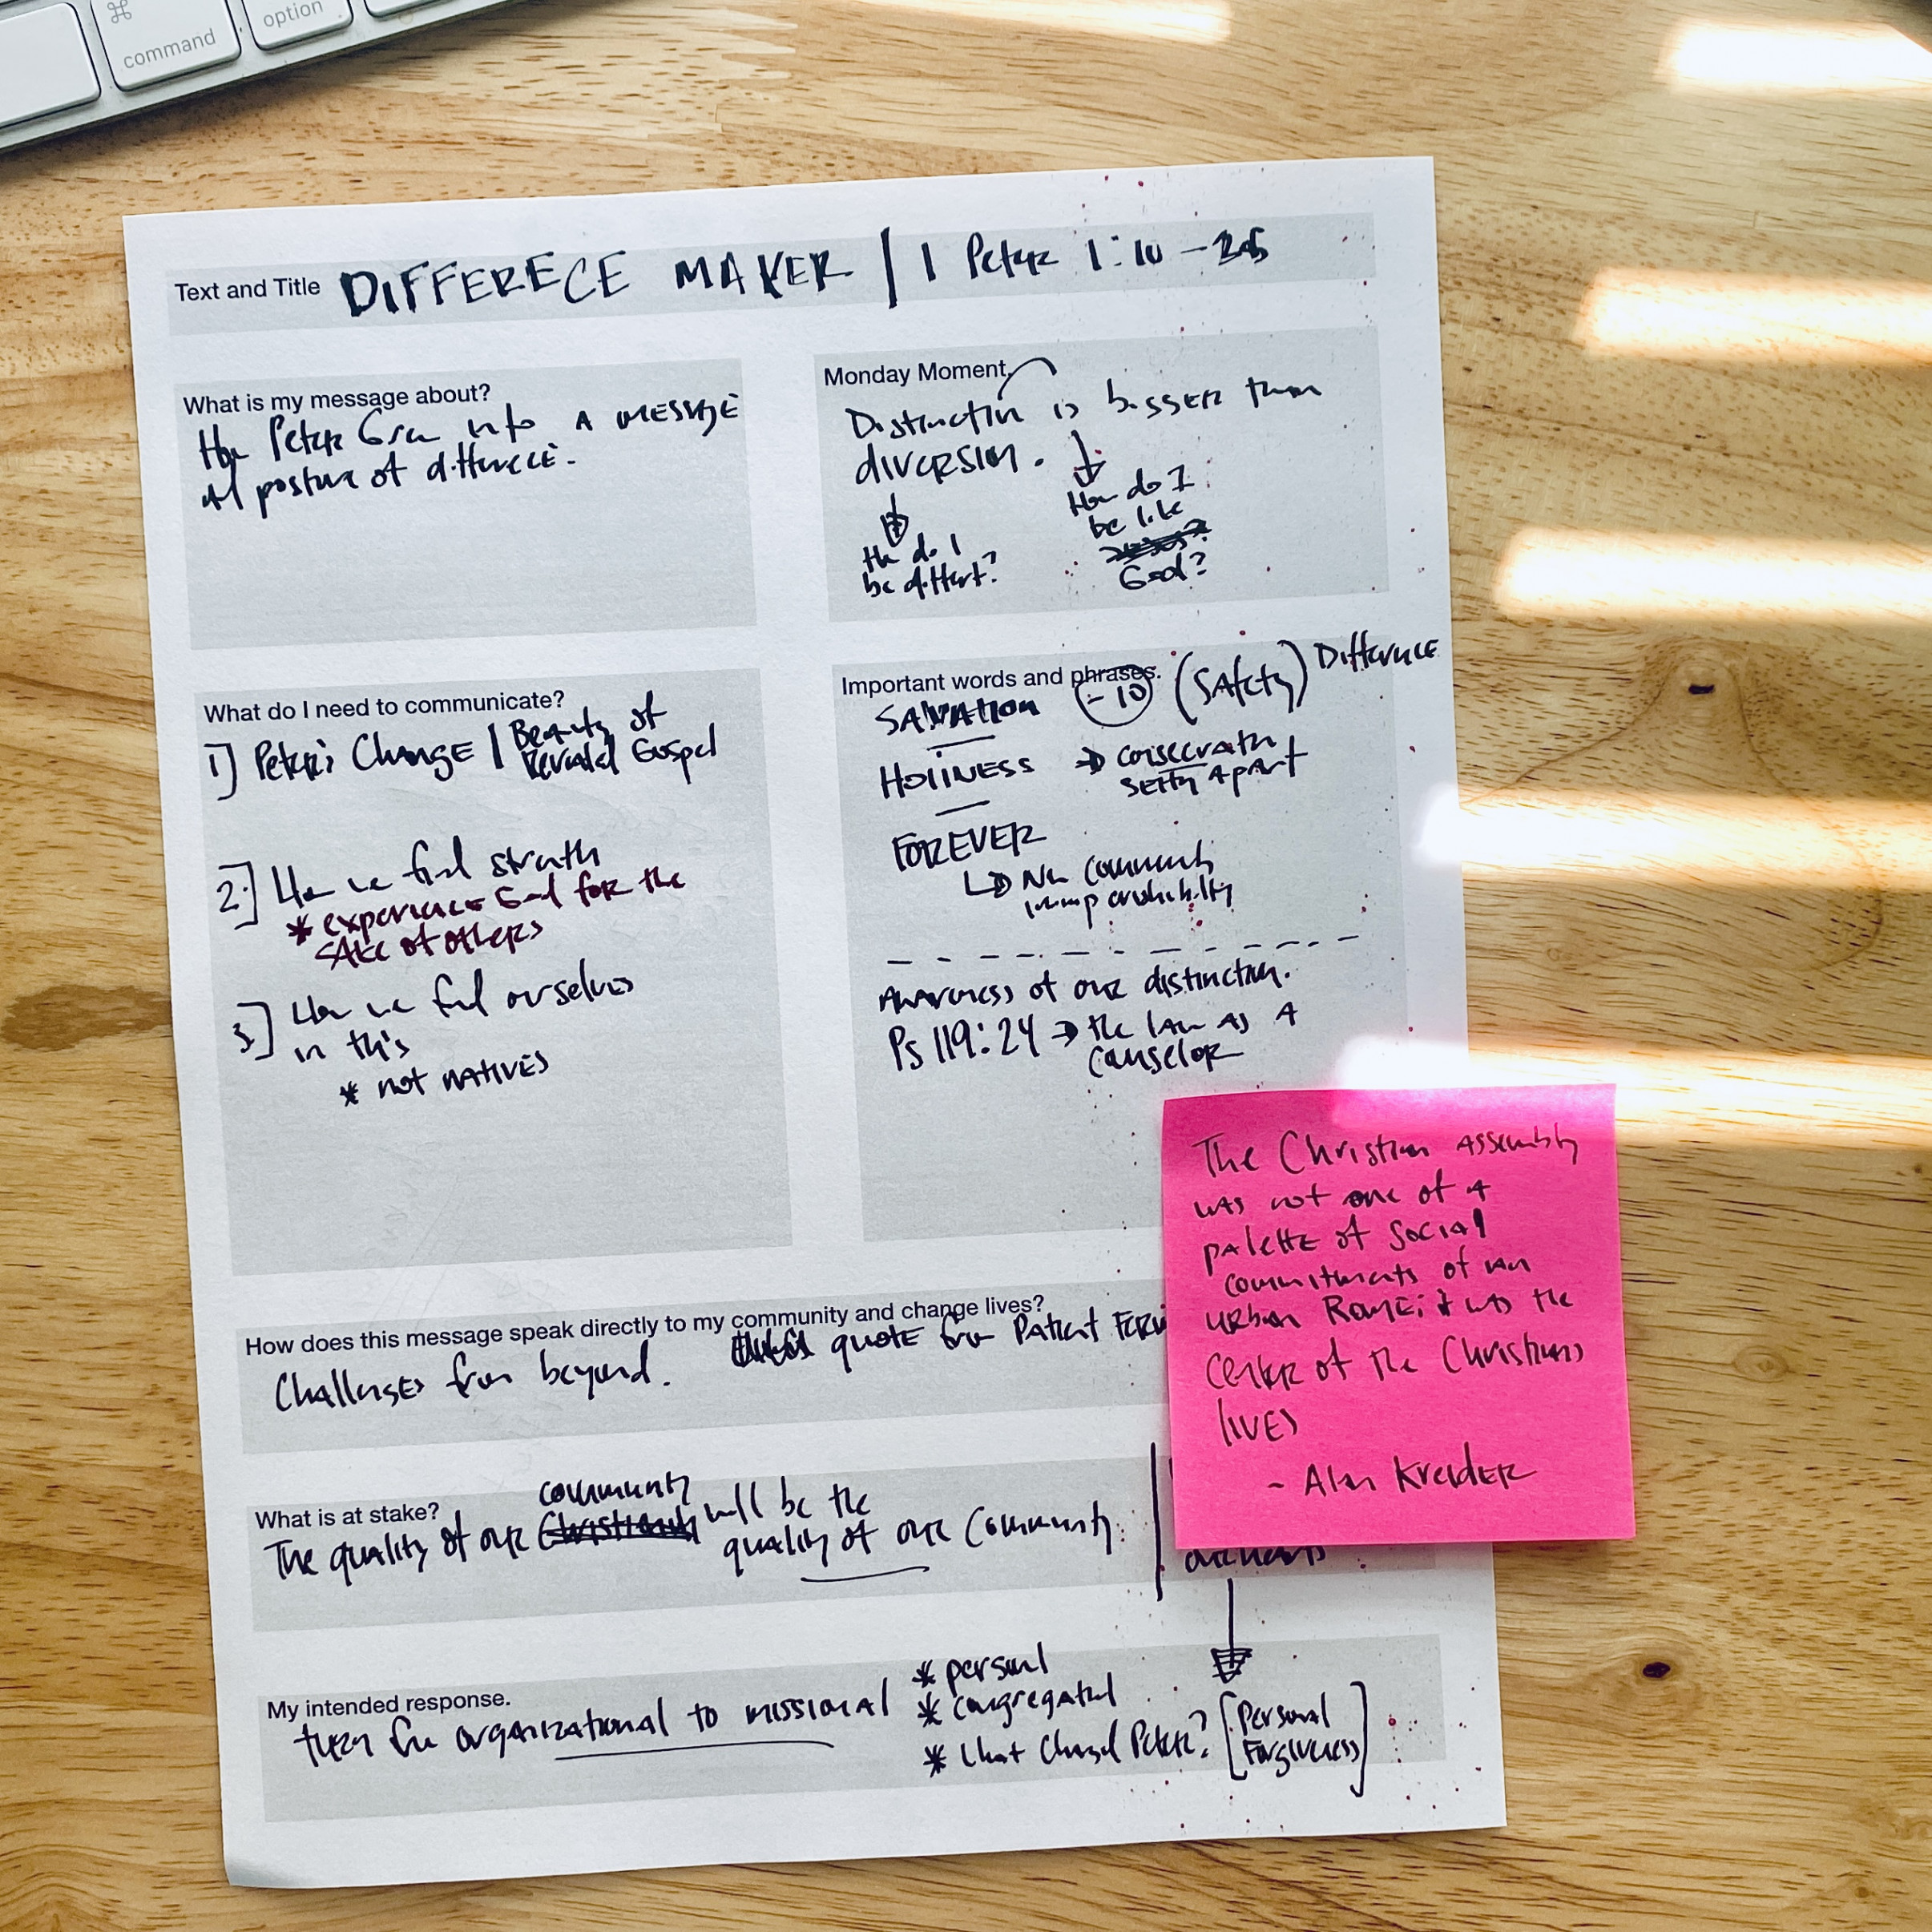 ⌘
command
option
Text and Title DIFFERECE MAKER | 1 Peter 1:10-25
What is my message about?
How Peter Grew into A MESSAGE
and posture of differece.
Monday Moment.
Distinction is bigger than
diversion.
How do I
be like
God?
How do I
be diffent?
What do I need to communicate?
1] Peter's Change | Beauty of
Revealed Gospel
2.] How we find strength
* experience God for the
SAke of others
3] How we find ourselves
in this
* not NATIVES
Important words and phrases.
SALVATION - 10 (SAfety) Difference
HOLINESS → consecration
setting Apart
FOREVER
↳ New community
imperishability
Awareness of our distinction.
Ps 119:24 → the law as A
counselor
The Christian Assembly
was not one of A
palette of Social
commitments of an
urban Roman; it was the
center of the Christians
lives
- Alan Kreider
How does this message speak directly to my community and change lives?
Challenges from beyond. quote from Patient Ferm
What is at stake?
community
The quality of our will be the
quality of our Community.
My intended response.
turn from organizational to missional
* personal
* congregational
* What Changed Peter? [Personal
Forgiveness]